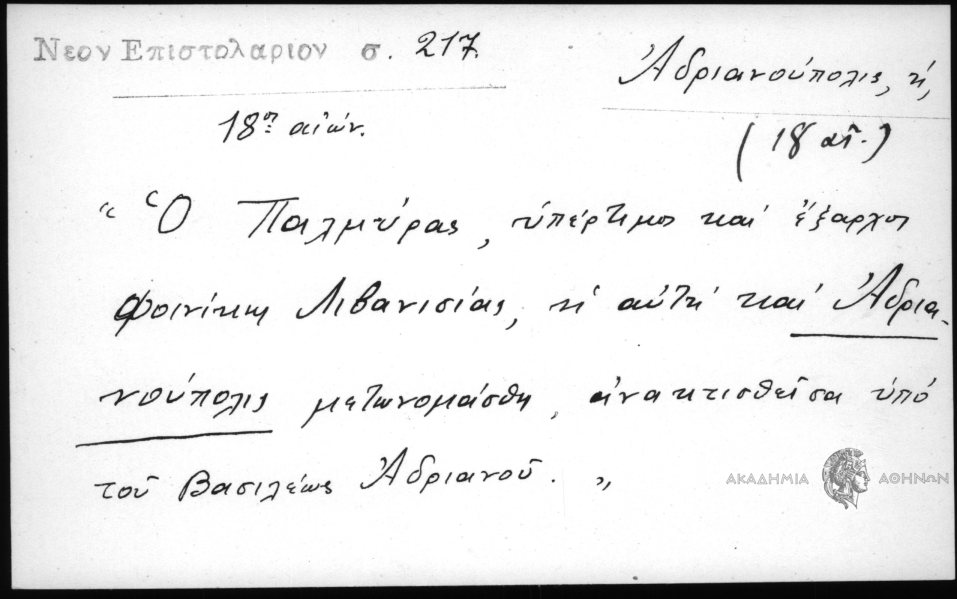 Νεον Επιστολαριον σ. 217.
Ἀδριανούπολις, ἡ,
18ος αἰών.
(18 αἰ.)
“ Ὁ Παλμύρας, ὑπέρτιμος καὶ ἔξαρχος
Φοινίκης Λιβανισίας, ἡ αὐτὴ καὶ Ἀδρια-
νούπολις μετωνομάσθη, ἀνακτισθεῖσα ὑπὸ
τοῦ Βασιλέως Ἀδριανοῦ. „
ΑΚΑΔΗΜΙΑ ΑΘΗΝΩΝ